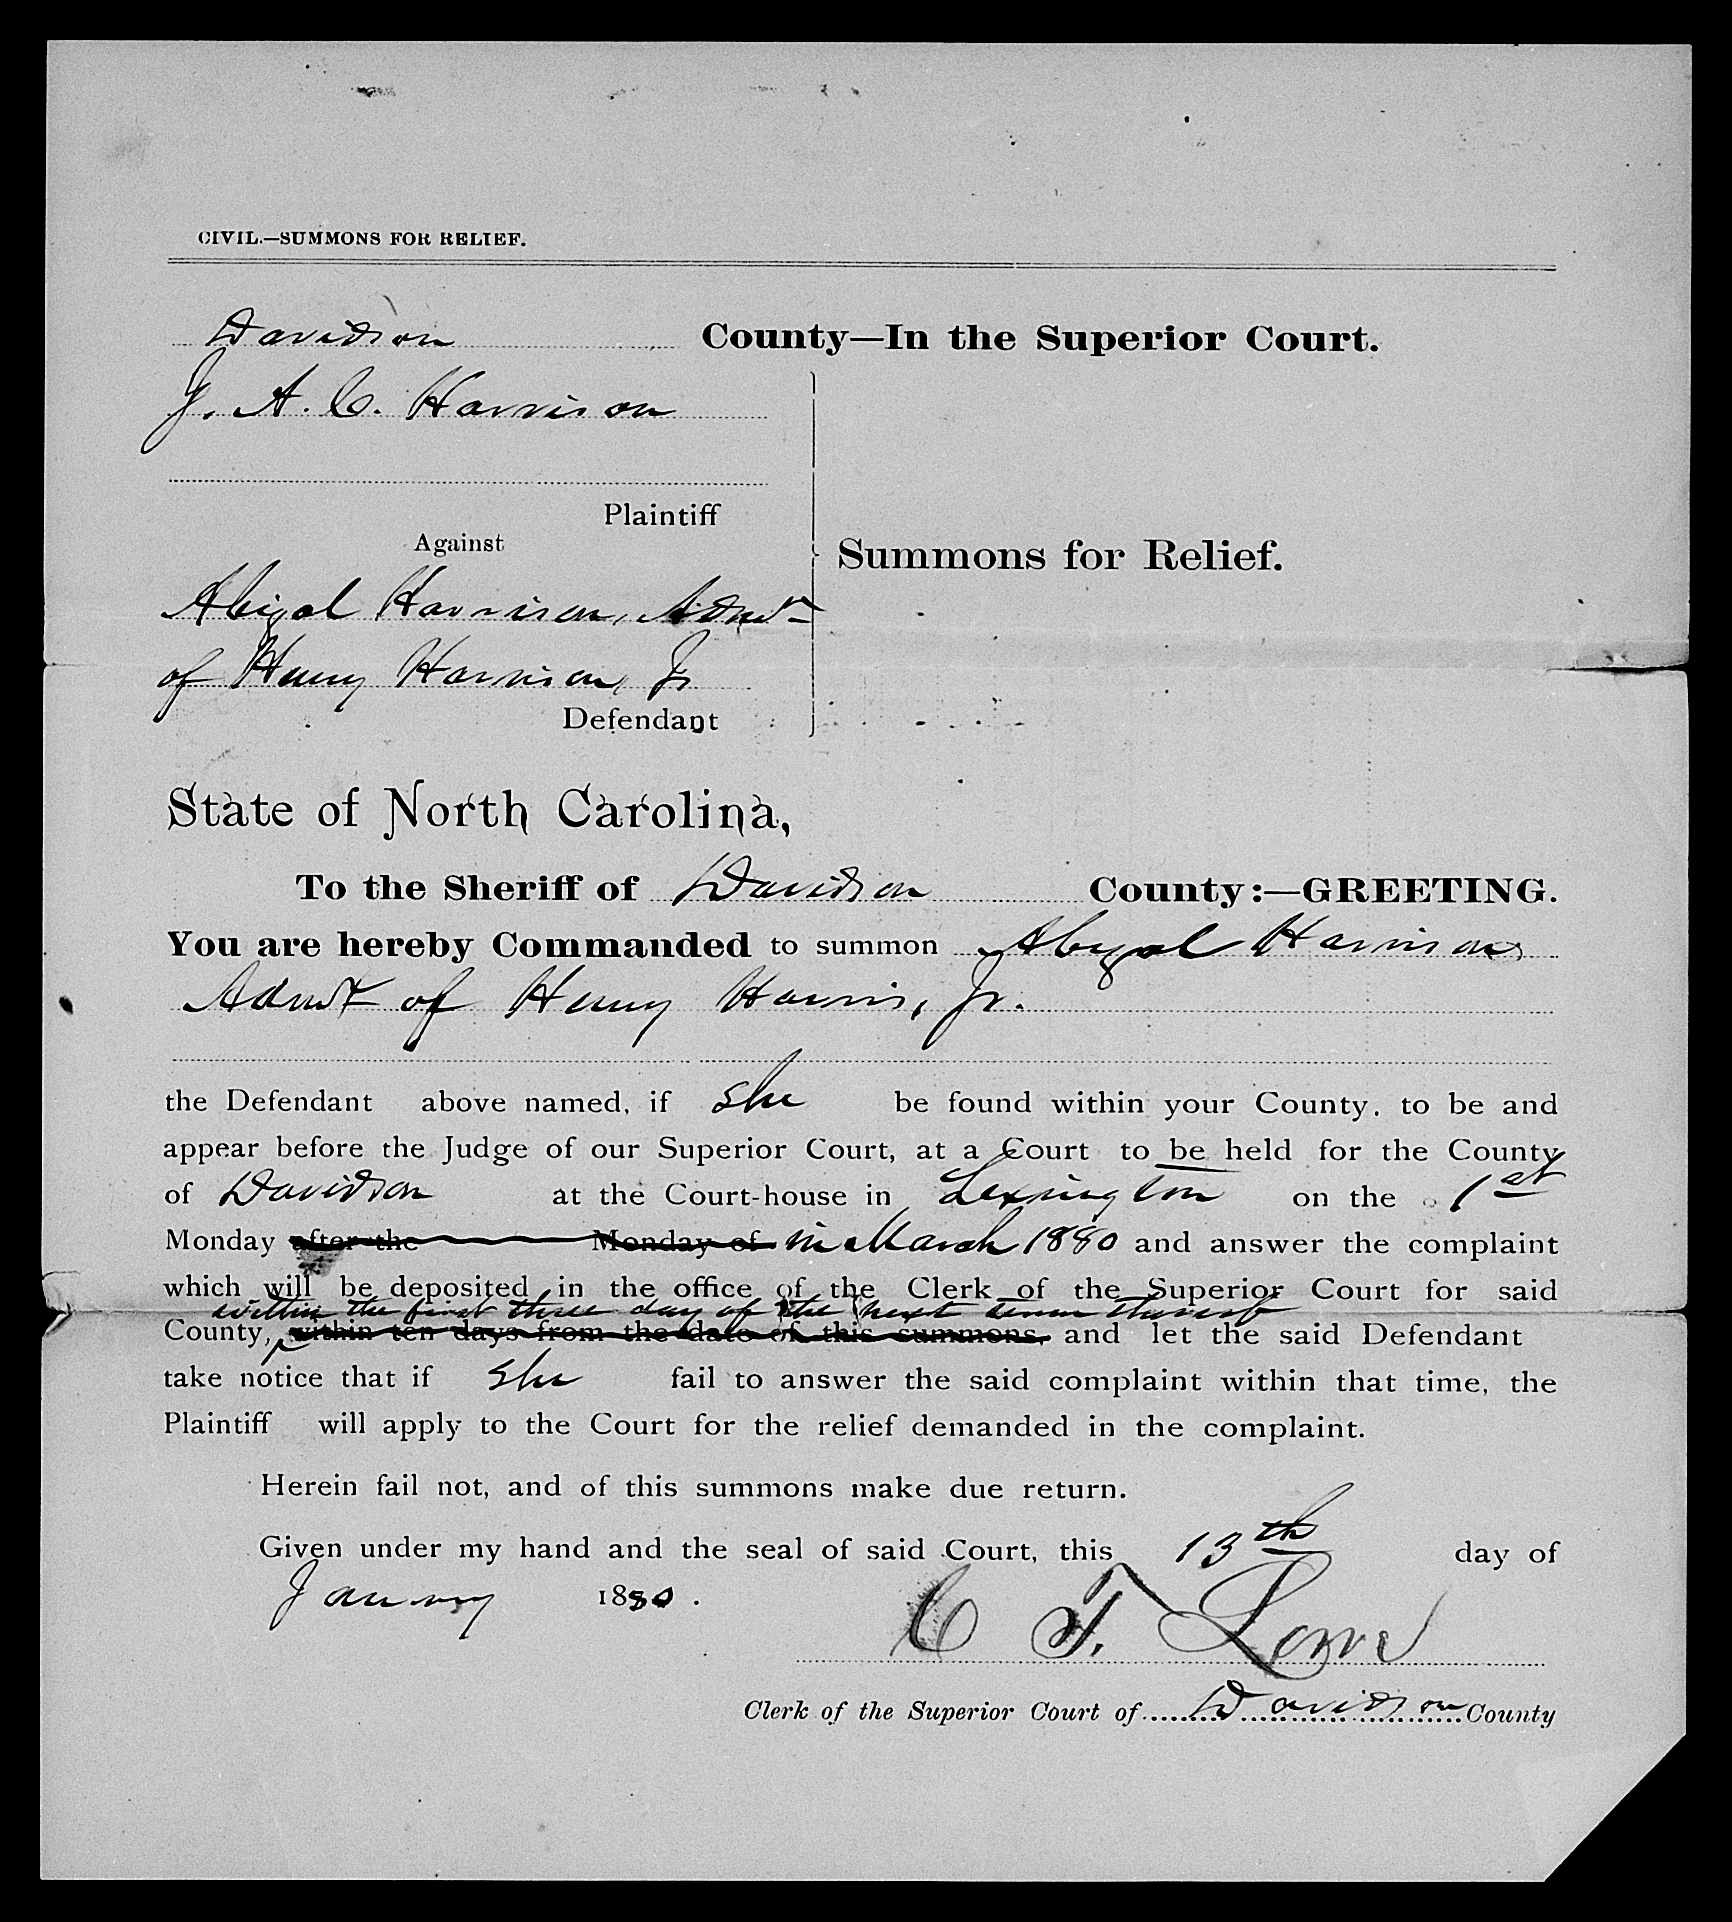 CIVIL.—SUMMONS FOR RELIEF.
Davidson County—In the Superior Court.
J. A. C. Harrison
Plaintiff
Against
Summons for Relief.
Abigal Harrison, Admr
of Henry Harrison, Jr
Defendant
State of North Carolina,
To the Sheriff of Davidson County:—GREETING.
You are hereby Commanded to summon Abigal Harrison,
Admr of Henry Harris, Jr.
the Defendant above named, if she be found within your County, to be and
appear before the Judge of our Superior Court, at a Court to be held for the County
of Davidson at the Court-house in Lexington on the 1st
Monday after the Monday of in March 1880 and answer the complaint
which will be deposited in the office of the Clerk of the Superior Court for said
within the first three day of the next term thereof
County, within ten days from the date of this summons, and let the said Defendant
take notice that if she fail to answer the said complaint within that time, the
Plaintiff will apply to the Court for the relief demanded in the complaint.
Herein fail not, and of this summons make due return.
Given under my hand and the seal of said Court, this 13th day of
January 1880.
C T. Lowe
Clerk of the Superior Court of Davidson County